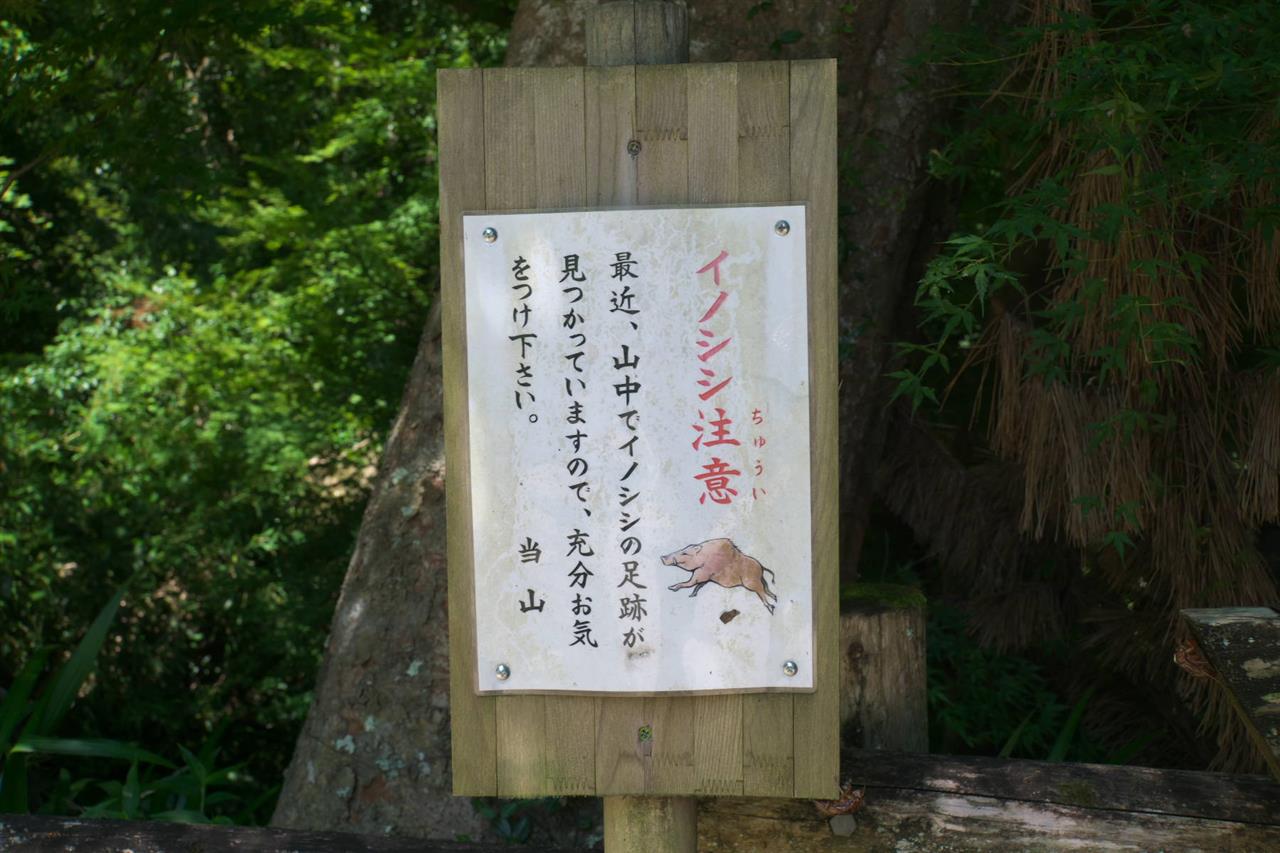 イノシシ注意
ちゅうい
最近、山中でイノシシの足跡が
見つかっていますので、充分お気
をつけ下さい。
当山